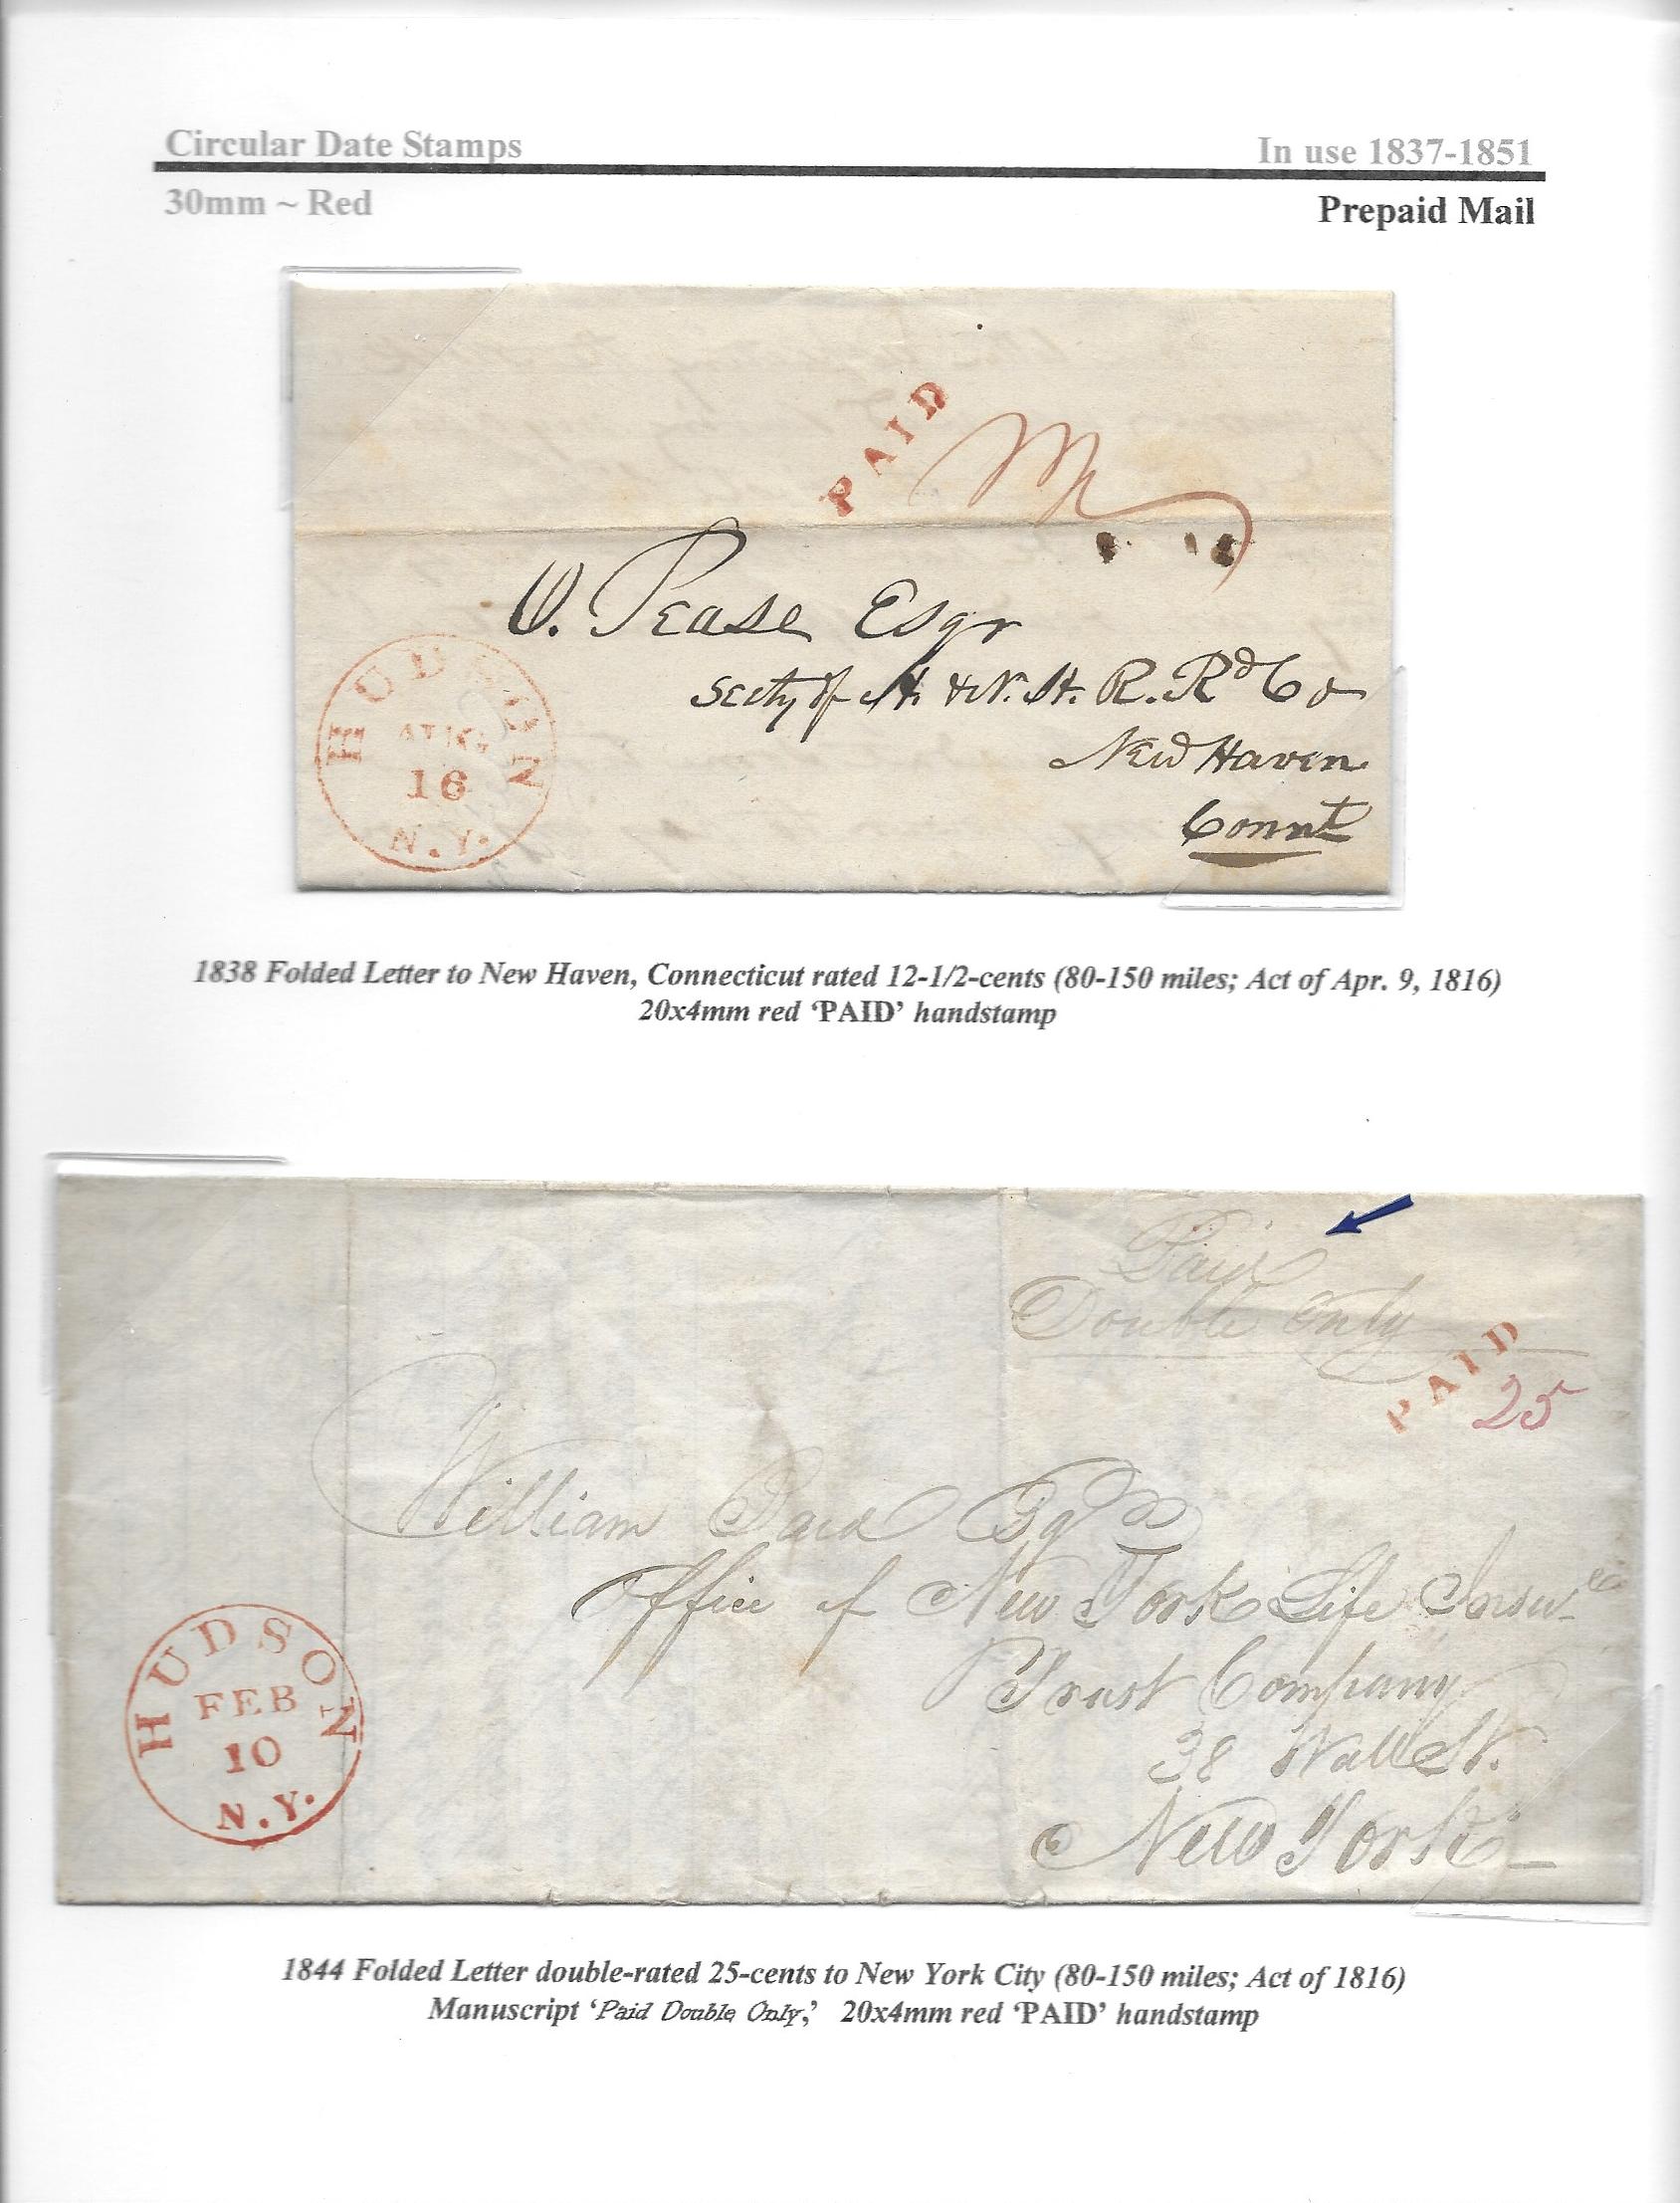 Circular Date Stamps
In use 1837-1851
30mm ~ Red
Prepaid Mail
PAID
O. Pease Esqr
Secty of H. & N. H. R. Rd Co
New Haven
Connt
HUDSON
AUG
16
N.Y.
1838 Folded Letter to New Haven, Connecticut rated 12-1/2-cents (80-150 miles; Act of Apr. 9, 1816)
20x4mm red ‘PAID’ handstamp
Paid
Double Only
PAID
25
William Bard Esqr
Office of New York Life Insur ce
Trust Company
38 Wall St.
New York
HUDSON
FEB
10
N.Y.
1844 Folded Letter double-rated 25-cents to New York City (80-150 miles; Act of 1816)
Manuscript ‘Paid Double Only,’ 20x4mm red ‘PAID’ handstamp